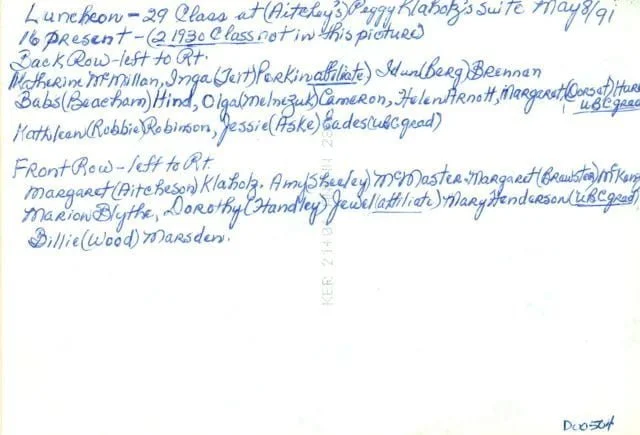 Luncheon - 29 Class at (Aitchey's) Peggy Klaholz's suite May 8/91
16 present - (2 1930 Class not in this picture)
Back Row - left to Rt.
Katherine McMillan, Inga (Teit) Perkin affiliate) Idun (Berg) Brennan
Babs (Beacham) Hind, Olga (Melnezuk) Cameron, Helen Arnott, Margaret (Dorsat)
UBC grad
Kathleen (Robbie) Robinson, Jessie (Aske) Eades (UBC grad)
Front Row - left to Rt.
Margaret (Aitcheson) Klaholz. Amy (Sheeley) McMaster. Margaret (Brewster)
Marion Blythe, Dorothy (Handley) Jewel (affiliate) Mary Henderson (UBC grad)
Billie (Wood) Marsden.